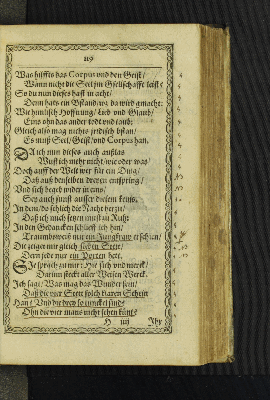 119
Was hilffts das Corpus vnd den Geist/
Wann nicht die Seel jhn Gsellschafft leist?
So du nun dieses hast in acht/
Denn hats ein Bstand wa da wird gmacht:
Wie heimlich Hoffnung/ Lieb vnd Glaub/
Eins ohn das ander todt vnd taub:
Gleich also mag nichts jrrdisch bstan/
Es muß Seel/ Geist/ vnd Corpus han.
Da ich nun dieses auch außlas
Wust ich nicht wie oder was
Doch auff der Welt wer für ein Ding/
Daß auß denselben dreyen entspring/
Vnd sich begeb wider in eins/
Sey auch sunst ausser dieser keins.
In dem/ da schlich die Nacht herzu/
Daß ich mich legen must zu Ruh:
In den Gedancken schlieff ich hin/
Traumbsweiß mir ein Jungfraw erschien/
Die zeiget mir gleich sieben Stett/
Dern jede nur ein Porten hett.
Sie sprach zu mir: Hie sich vnd merck/
Darinn steckt aller Weisen Werck.
Ich sagt/ Was mag das Wunder sein/
Daß die vier Stett solch klaren Schein
Han/ Vnd die drey so tunckel sind?
Ohn die vier mans nicht sehen künt?
H iiij
Jhr